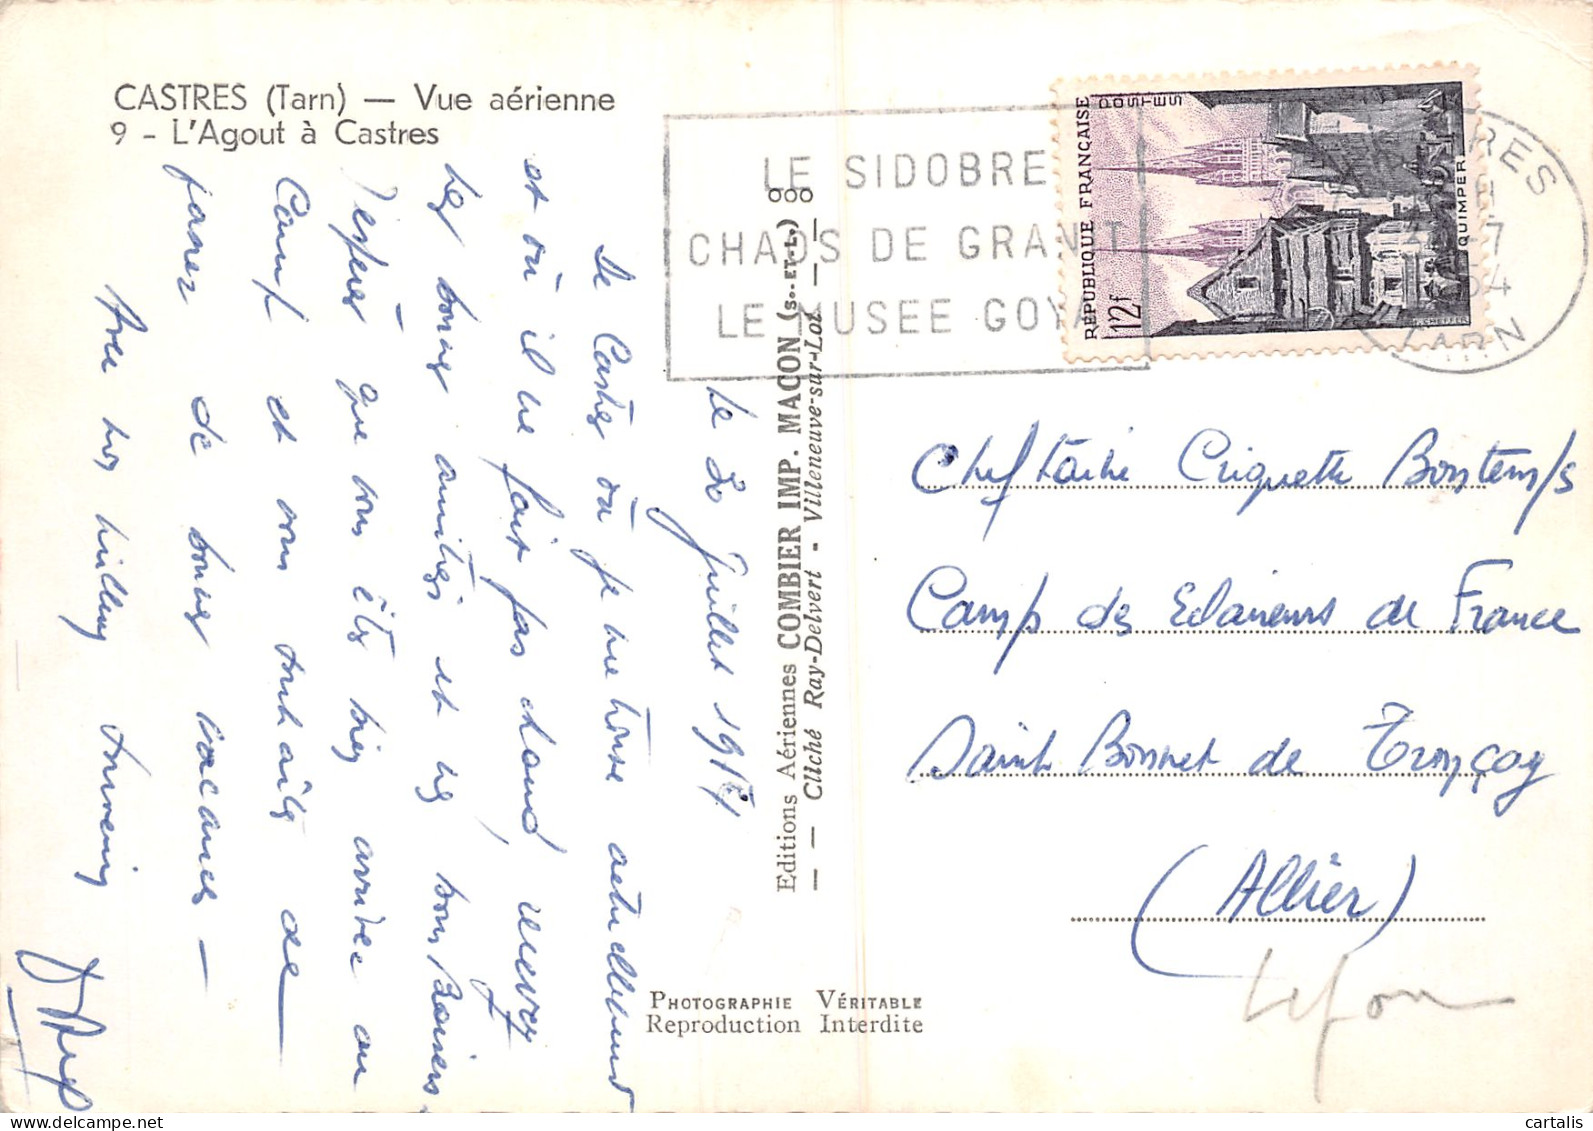 CASTRES (Tarn) — Vue aérienne
9 - L'Agout à Castres
LE SIDOBRE
CHAOS DE GRANIT
LE MUSEE GOYA
RÉPUBLIQUE FRANÇAISE
POSTES
12f
QUIMPER
CHEFFER
TRES
H
-7
54
TARN
Le 30 Juillet 1954
De Castres où je me trouve actuellement
et où il ne fait pas chaud, recevez
les bonnes amitiés et les bons Baisers.
J'espère que vous êtes bien arrivée au
Camp et vous souhaite de
passer de bonnes vacances —
Avec mes meilleurs souvenirs
Editions Aériennes COMBIER IMP. MACON (S.-ET-L.)
— Cliché Ray-Delvert - Villeneuve-sur-Lot —
Cheftaine Criquette Bontemps
Camp des Eclaireurs de France
Saint Bonnet de Tronçay
(Allier)
PHOTOGRAPHIE VÉRITABLE
Reproduction Interdite